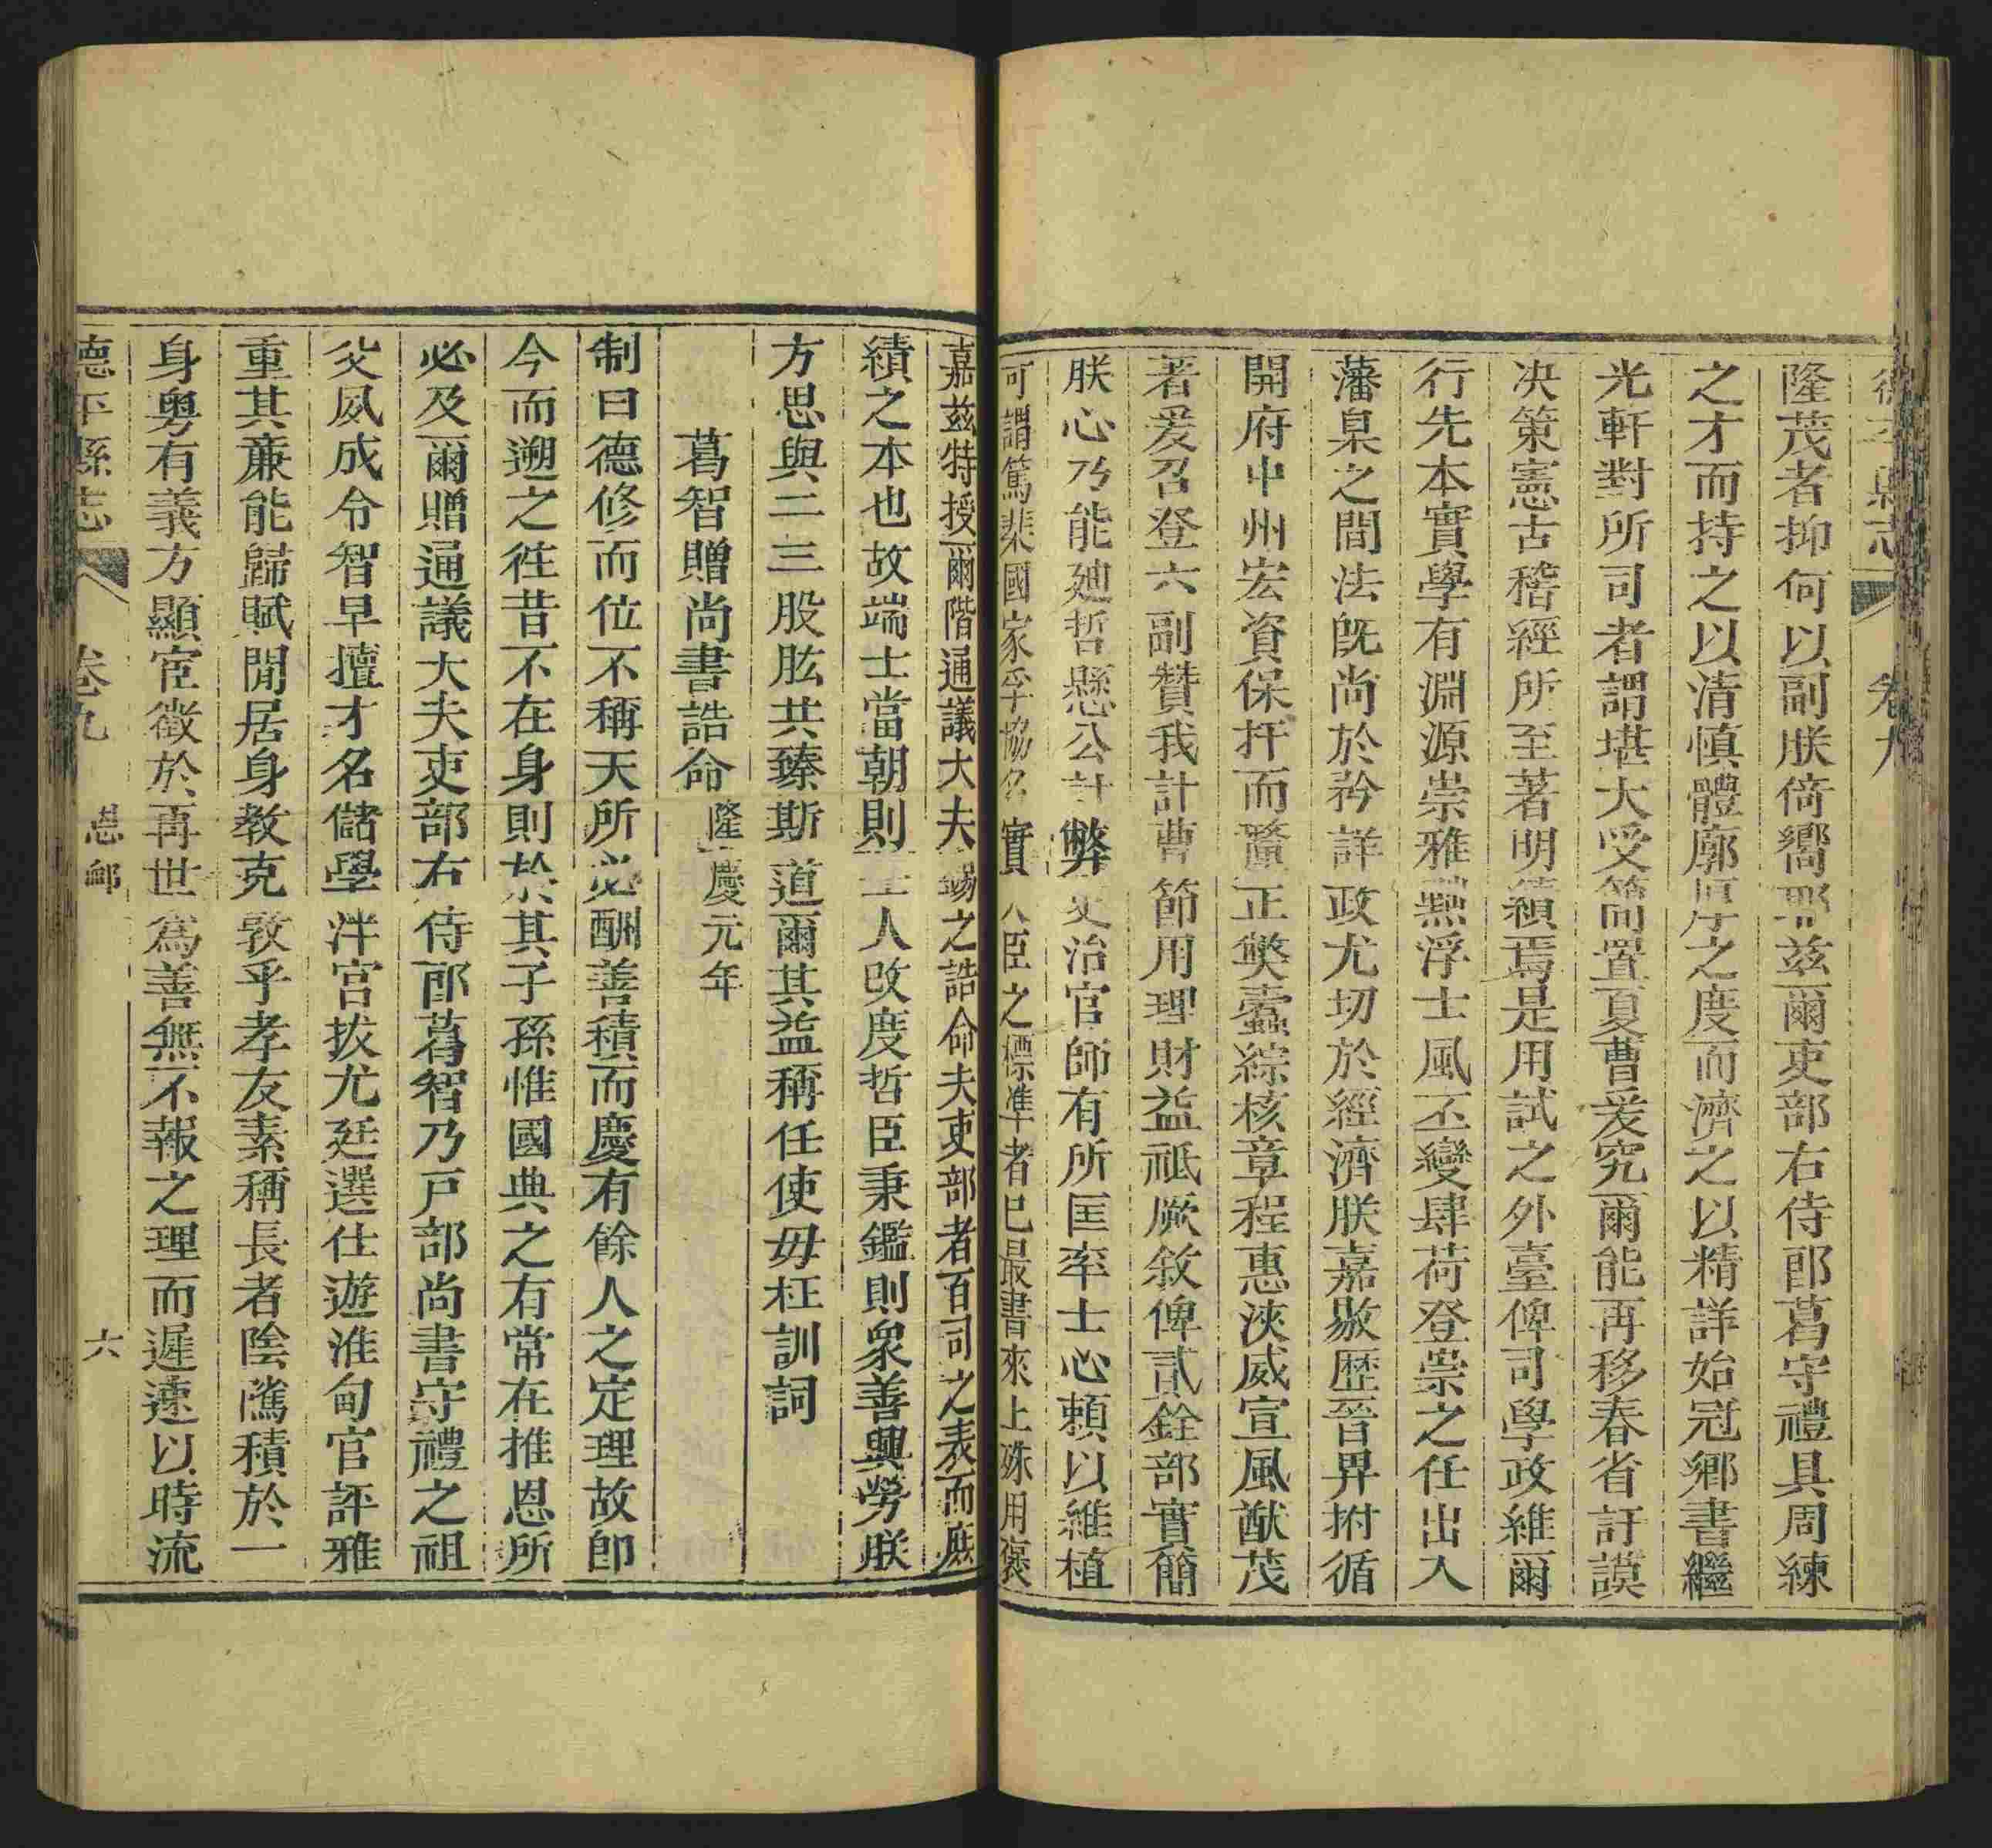 德平縣志 卷九
隆茂者抑何以副朕倚嚮耶茲爾吏部右侍郎葛守禮具周練
之才而持之以清慎體廓厚之度而濟之以精詳始冠鄉書繼
光軒對所司者謂堪大受簡置夏曹爰究爾能再移春省訏謨
决策憲古稽經所至著明績焉是用試之外臺俾司學政維爾
行先本實學有淵源崇雅黜浮士風丕變肆荷登崇之任出入
藩臬之間法既尚於矜詳政尤切於經濟朕嘉敭歷晉畀拊循
開府中州宏資保扞而釐正獘蠹綜核章程惠浹威宣風猷茂
著爰召登六副贊我計曹節用理財益祗厥敘俾貳銓部實簡
朕心乃能廸哲懸公計弊吏治官師有所匡率士心賴以維植
可謂篤棐國家孚協名實大臣之標準者已最書來上殊用褒
嘉茲特授爾階通議大夫錫之誥命夫吏部者百司之表而庶
績之本也故端士當朝則士人改度哲臣秉鑑則衆善興勞朕
方思與二三股肱共臻斯道爾其益稱任使毋枉訓詞
葛智贈尚書誥命 隆慶元年
制曰德修而位不稱天所必酬善積而慶有餘人之定理故卽
今而遡之徃昔不在身則於其子孫惟國典之有常在推恩所
必及爾贈通議大夫吏部右侍郎葛智乃戸部尚書守禮之祖
父夙成令智早擅才名儲學泮宮拔尤廷選仕遊淮甸官評雅
重其亷能歸賦閒居身教克敦乎孝友素稱長者陰隲積於一
身粤有義方顯宦徵於再世爲善無不報之理而遲速以時流
德平縣志 卷九 恩䘏 六